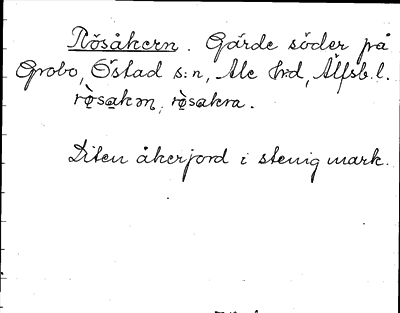 Rösåkern. Gärde söder på
Grobo, Östad s:n, Ale hd, Älfsb. l.
rö̀sakən, rö̀sakra.
Liten åkerjord i stenig mark.